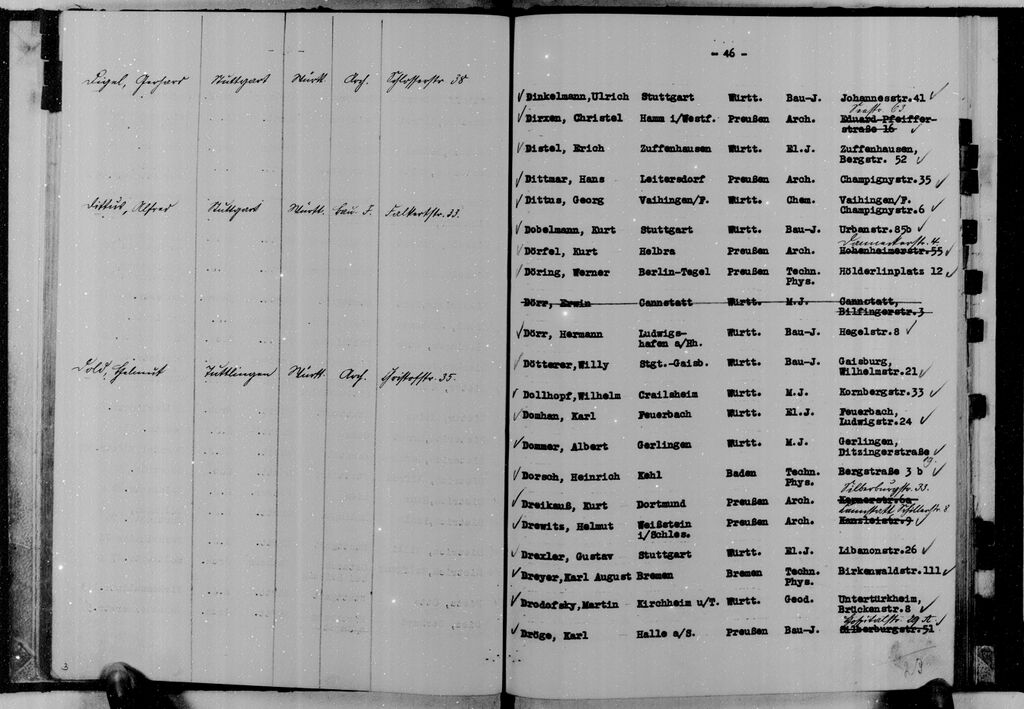 Digel, Gerhard Stuttgart Württ. Arch. Schlosserstr. 38
Dittus, Alfred Stuttgart Württ. Bau-J. Falkertstr. 33.
Dold, Helmut Tuttlingen Württ. Arch. 35.
3
- 46 -
Dinkelmann,Ulrich Stuttgart Württ. Bau-J. Johannesstr.41
Seestr. 63
Dirxen, Christel Hamm i/Westf. Preußen Arch. Eduard-Pfeiffer-
straße 16
Distel, Erich Zuffenhausen Württ. El.J. Zuffenhausen,
Bergstr. 52
Dittmar, Hans Leitersdorf Preußen Arch. Champignystr.35
Dittus, Georg Vaihingen/F. Württ. Chem. Vaihingen/F.
Champignystr.6
Dobelmann, Kurt Stuttgart Württ. Bau-J. Urbanstr.85b
Danneckerstr. 4
Dörfel, Kurt Helbra Preußen Arch. Hohenheimerstr.55
Döring, Werner Berlin-Tegel Preußen Techn. Hölderlinplatz 12
Phys.
Dörr, Erwin Cannstatt Württ. M.J. Cannstatt,
Bilfingerstr.3
Dörr, Hermann Ludwigs- Württ. Bau-J. Hegelstr.8
hafen a/Rh.
Dötterer,Willy Stgt.-Gaisb. Württ. Bau-J. Gaisburg,
Wilhelmstr.21
Dollhopf,Wilhelm Crailsheim Württ. M.J. Kornbergstr.33
Domhan, Karl Feuerbach Württ. El.J. Feuerbach,
Ludwigstr.24
Dommer, Albert Gerlingen Württ. M.J. Gerlingen,
Ditzingerstraße
19
Dorsch, Heinrich Kehl Baden Techn. Bergstraße 3 b
Phys.
Silberburgstr. 33.
Dreikauß, Kurt Dortmund Preußen Arch. Kernerstr.6a
Cannstatt, Schillerstr. 8
Drewitz, Helmut Weißstein Preußen Arch. Kanzleistr.9
i/Schles.
Drexler, Gustav Stuttgart Württ. El.J. Libanonstr.26
Dreyer,Karl August Bremen Bremen Techn. Birkenwaldstr.111
Phys.
Drodofsky,Martin Kirchheim u/T. Württ. Geod. Untertürkheim,
Brückenstr.8
Hospitalstr. 29 A
Dröge, Karl Halle a/S. Preußen Bau-J. Silberburgstr.51